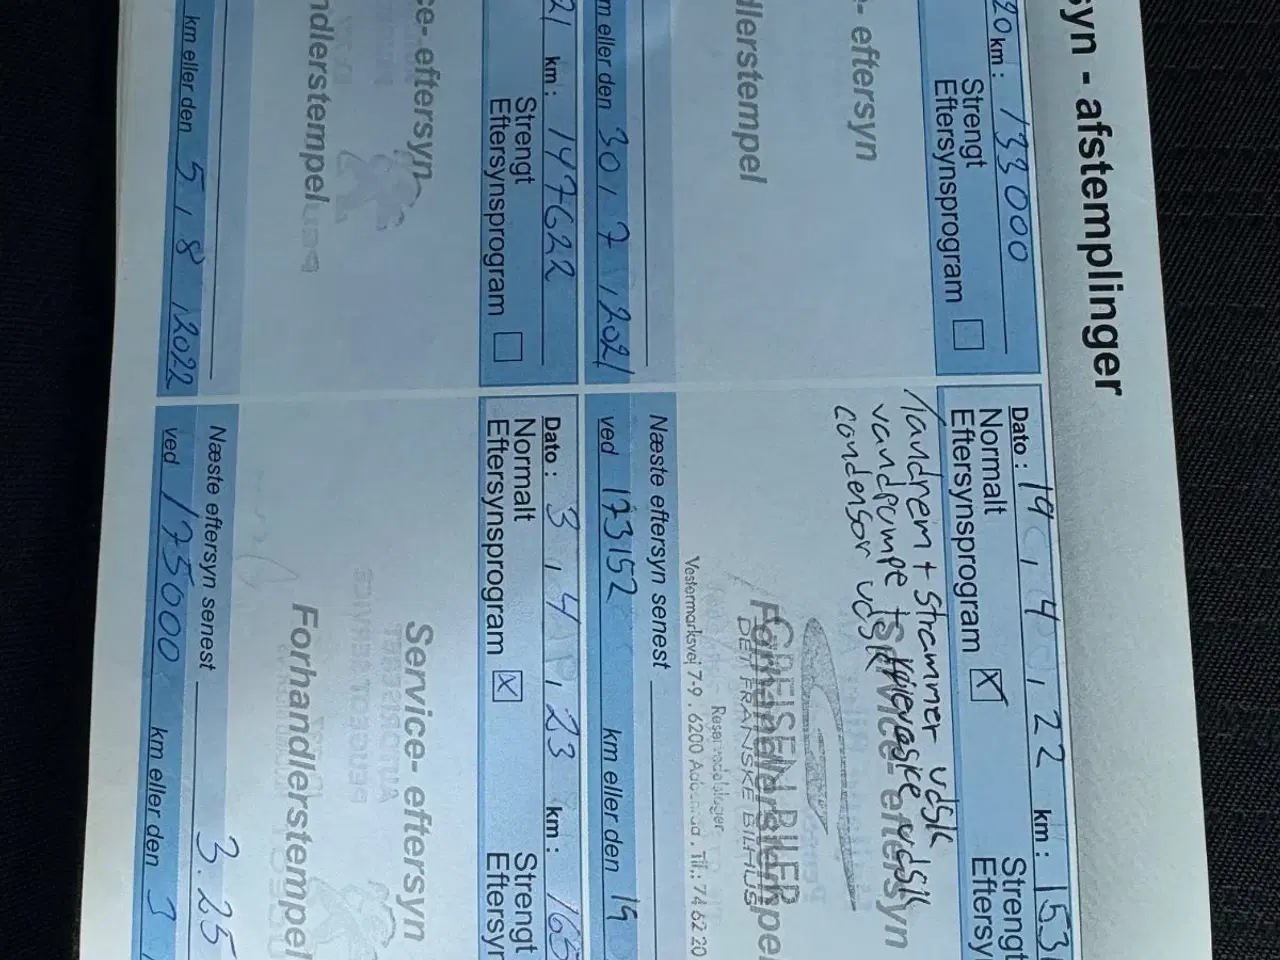 syn - afstemplinger
20 km : 133000
Strengt
Eftersynsprogram
- eftersyn
dlerstempel
m eller den 30 , 7 , 2021
21 km : 147622
Strengt
Eftersynsprogram
ce- eftersyn
ndlerstempel
km eller den 5 , 8 , 2022
Dato : 19 , 4 , 22 km : 153
Normalt
Eftersynsprogram X
Strengt
Eftersy
Tandrem + strammer udsk
vandpumpe + kølevæske udsk
condensor udsk
Service- eftersyn
GREISEN BILER
Forhandlerstempel
DET FRANSKE BILHUS
Vestermarksvej 7-9 . 6200 Aabenraa . Tlf.: 74 62 20
Næste eftersyn senest
ved 173152 km eller den 19
Dato : 3 , 4 , 23 km : 165
Normalt
Eftersynsprogram X
Strengt
Eftersyn
Service- eftersyn
Forhandlerstempel
Næste eftersyn senest 3.25
ved 175000 km eller den 3